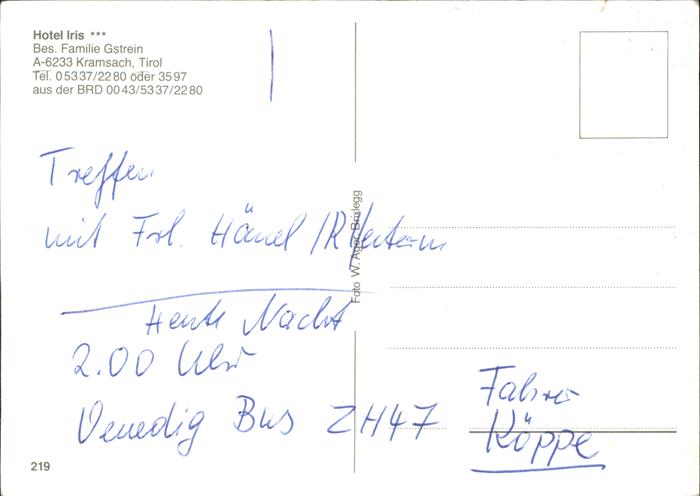 Hotel Iris ***
Bes. Familie Gstrein
A-6233 Kramsach, Tirol
Tel. 0 53 37/22 80 oder 35 97
aus der BRD 00 43/53 37/22 80
Treffen
mit Frl. Hänel /
Heute Nacht
2.00 Uhr
Venedig Bus ZH47
Foto W. Ager Brixlegg
Fahrer
Köppe
219